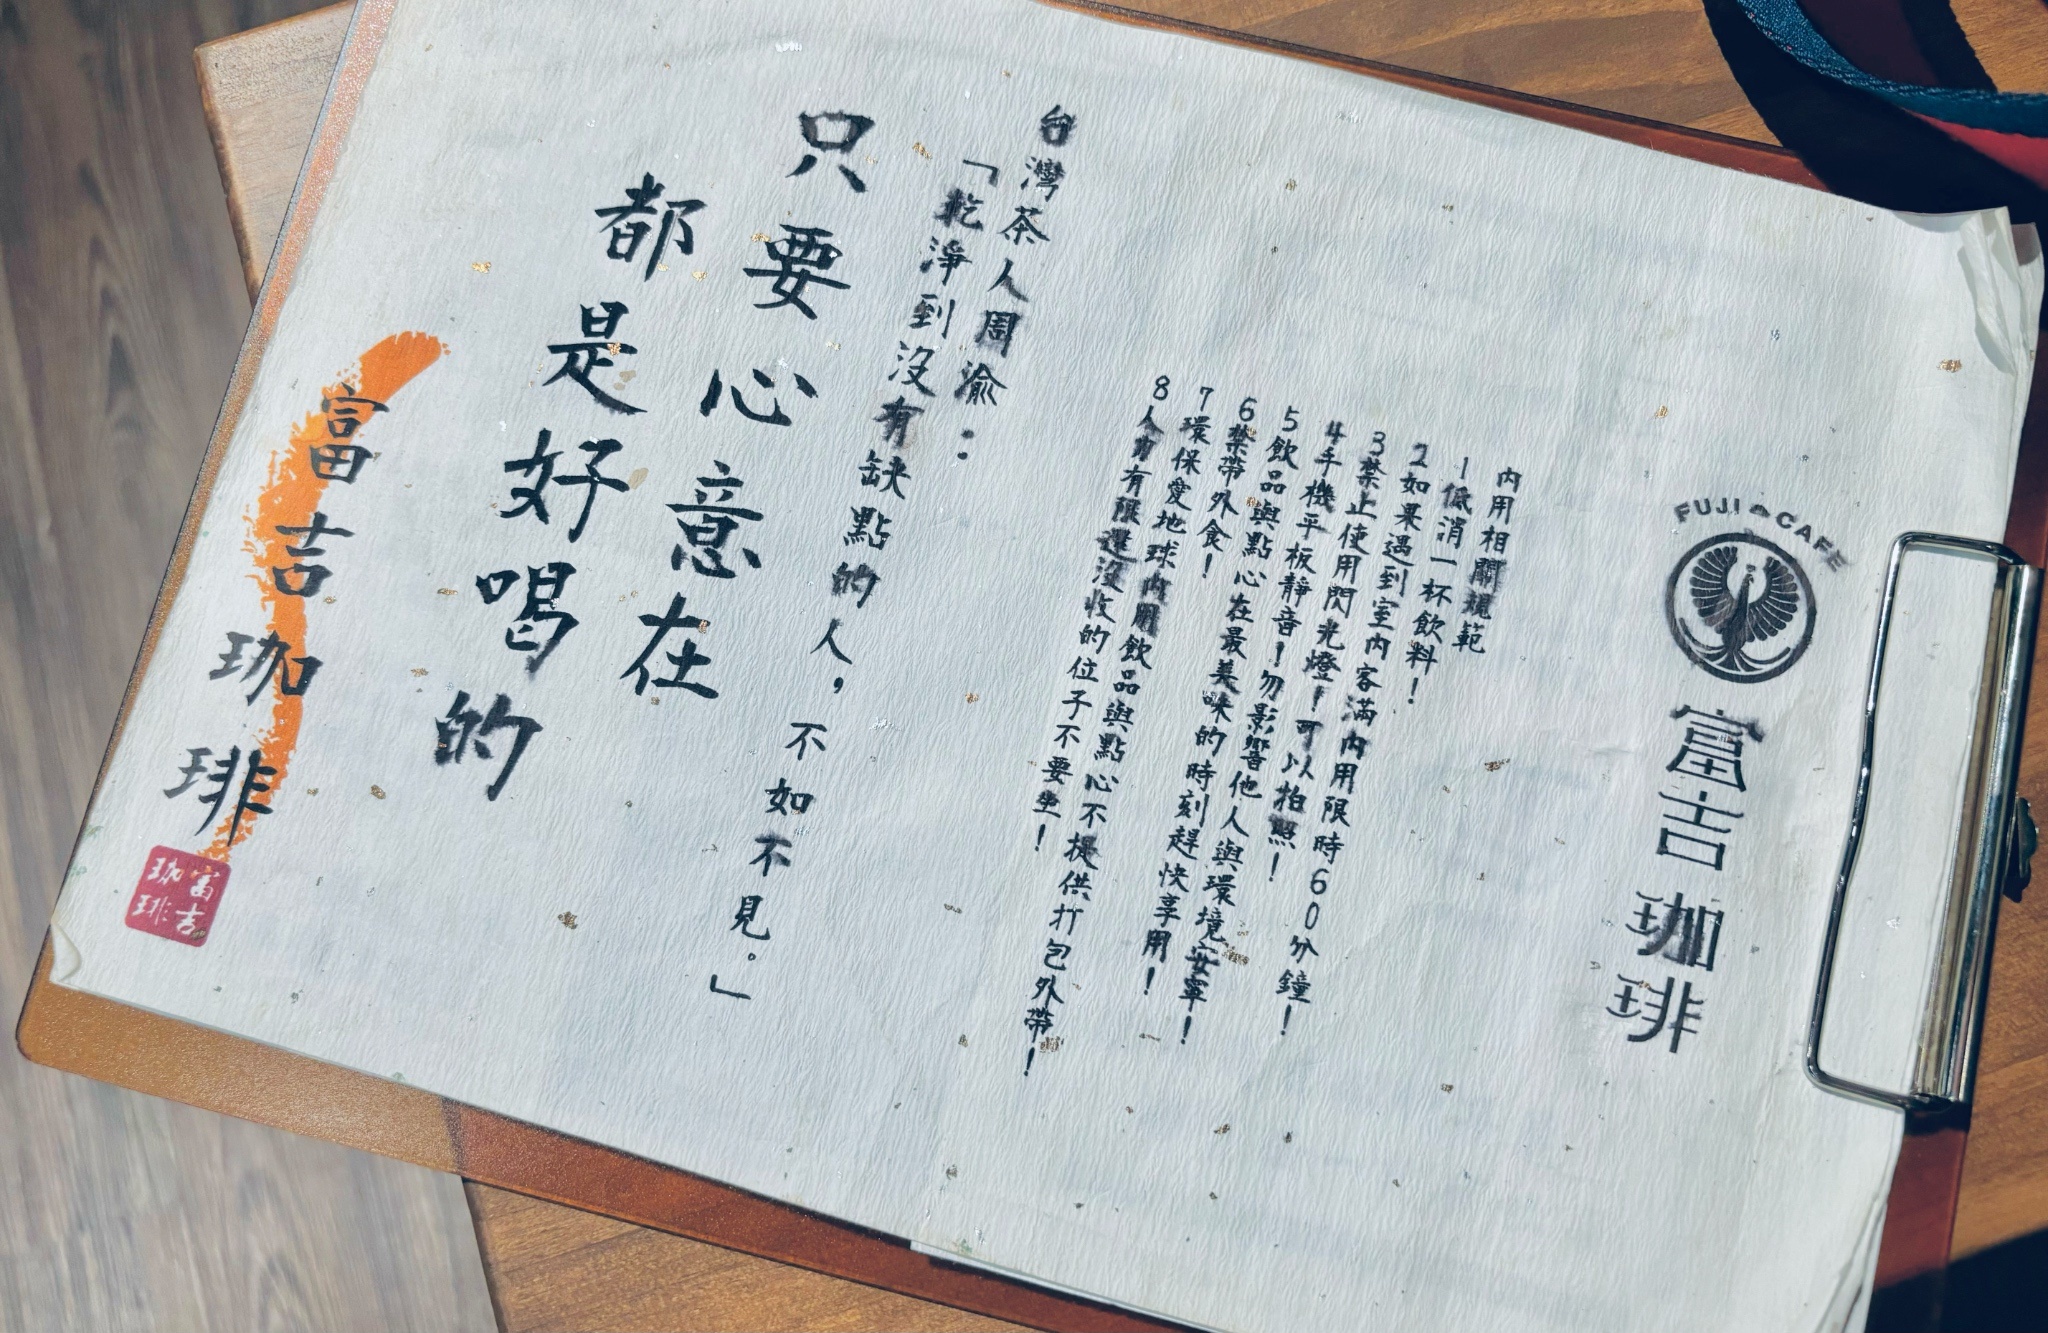 FUJI CAFE
富吉珈琲
內用相關規範
1低消一杯飲料！
2如果遇到室內客滿內用限時60分鐘！
3禁止使用閃光燈！可以拍照！
4手機平板靜音！勿影響他人與環境安寧！
5飲品與點心在最美味的時刻趕快享用！
6禁帶外食！
7環保愛地球內用飲品與點心不提供打包外帶！
8人力有限還沒收的位子不要坐！
台灣茶人周渝：
「乾淨到沒有缺點的人，不如不見。」
只要心意在
都是好喝的
富吉珈琲
富吉
珈琲